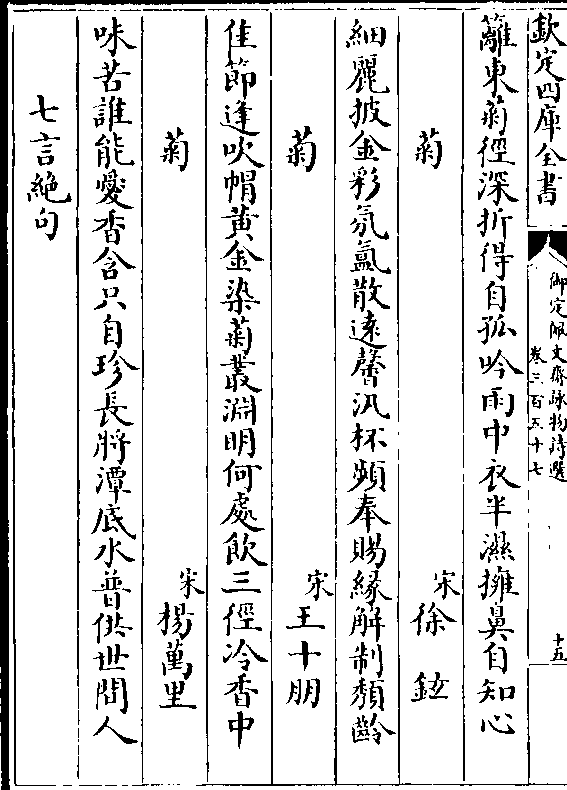 欽定四庫全書
御定佩文齋詠物詩選
卷三百五十七
十五
籬東菊徑深折得自孤吟雨中衣半濕擁鼻自知心
菊
宋徐鉉
細麗披金彩氛氳散遠馨汎杯頻奉賜縁解制頽齡
菊
宋王十朋
佳節逢吹帽黄金染菊叢淵明何處飲三徑冷香中
菊
宋楊萬里
味苦誰能愛香含只自珍長將潭底水普供世間人
七言絶句